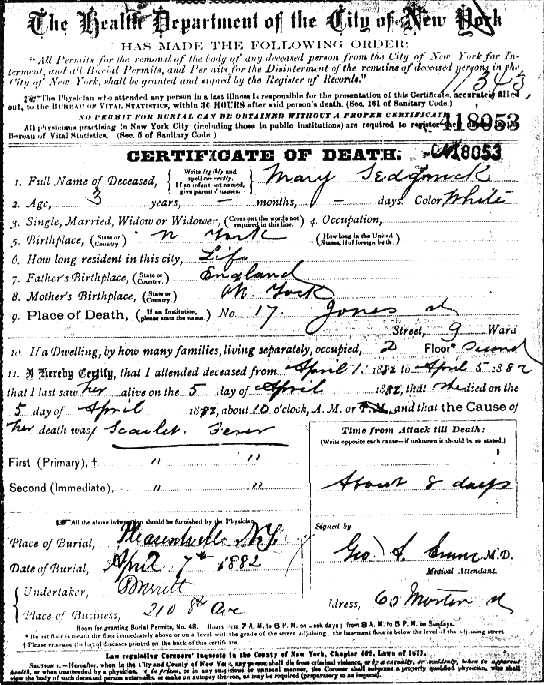 The Health Department of the City of New York
HAS MADE THE FOLLOWING ORDER:
"All Permits for the removal of the body of any deceased person from the City of New York for In-
terment, and all Burial Permits, and Permits for the Disinterment of the remains of deceased persons in the
City of New York, shall be granted and signed by the Register of Records."
343
The Physician who attended any person in a last illness is responsible for the presentation of this Certificate, accurately filled
out, to the BUREAU OF VITAL STATISTICS, within 36 HOURS after said person's death. (Sec. 161 of Sanitary Code.)
NO PERMIT FOR BURIAL CAN BE OBTAINED WITHOUT A PROPER CERTIFICATE.
All physicians practising in New York City (including those in public institutions) are required to register
Bureau of Vital Statistics. (Sec. 5 of Sanitary Code.)
418053
CERTIFICATE OF DEATH. 418053
1. Full Name of Deceased, { Write legibly and spell correctly. If an infant not named, give parents' names. } Mary Sedgwick
2. Age, 3 years, — months, — days. Color White
3. Single, Married, Widow or Widower, (Cross out the words not required in this line.) 4. Occupation,
5. Birthplace, (State or Country.) N York (How long in the United States, if of foreign birth.)
6. How long resident in this city, Life
7. Father's Birthplace, (State or Country.) England
8. Mother's Birthplace, (State or Country.) N. York
9. Place of Death, (If an Institution, please state the name.) No. 17. Jones st
Street, 9 Ward
10. If a Dwelling, by how many families, living separately, occupied, 2 Floor* Second
11. I Hereby Certify, that I attended deceased from April 1. 1882 to April 5 1882
that I last saw her alive on the 5 day of April 1882, that she died on the
5 day of April 1882, about 10 o'clock, A. M. or P.M. and that the Cause of
her death was: Scarlet Fever
Time from Attack till Death:
(Write opposite each cause—if unknown it should be so stated.)
First (Primary), † " "
Second (Immediate), " "
About 8 days
All the above information should be furnished by the Physician.
Place of Burial, Pleasantville N.Y.
Date of Burial, April 7th 1882
Undertaker,
Place of Business, 210 8th Ave
Signed by
Geo S. M.D.
Medical Attendant.
Address, 60 Morton st
Room for granting Burial Permits, No. 48. Hours: 7 A. M. to 6 P. M. on week days; from 8 A. M. to 5 P. M. on Sundays.
* The first floor is meant the floor immediately above or on a level with the grade of the street adjoining, the basement floor is below the level of the adjoining street.
Law regulating Coroners' Inquests in the County of New York, Chapter 462, Laws of 1871.